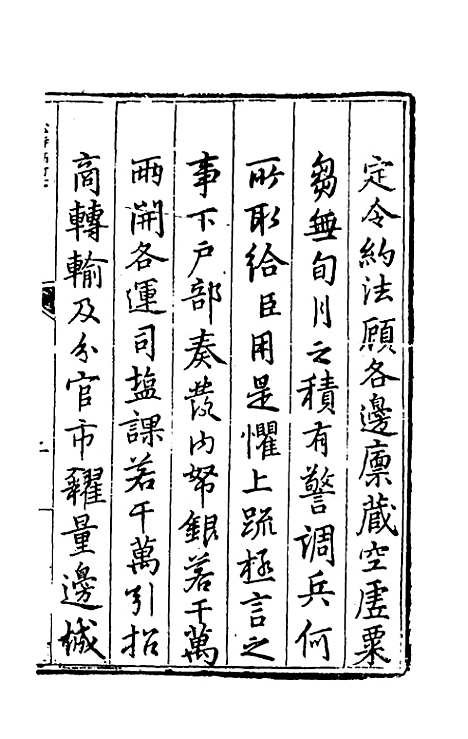 定令約法顧各邊廩藏空虛粟
芻無旬月之積有警調兵何
所取給臣用是懼上疏極言之
事下戶部奏發內帑銀若干萬
兩開各運司塩課若干萬引招
商轉輸及分官市糴量邊城